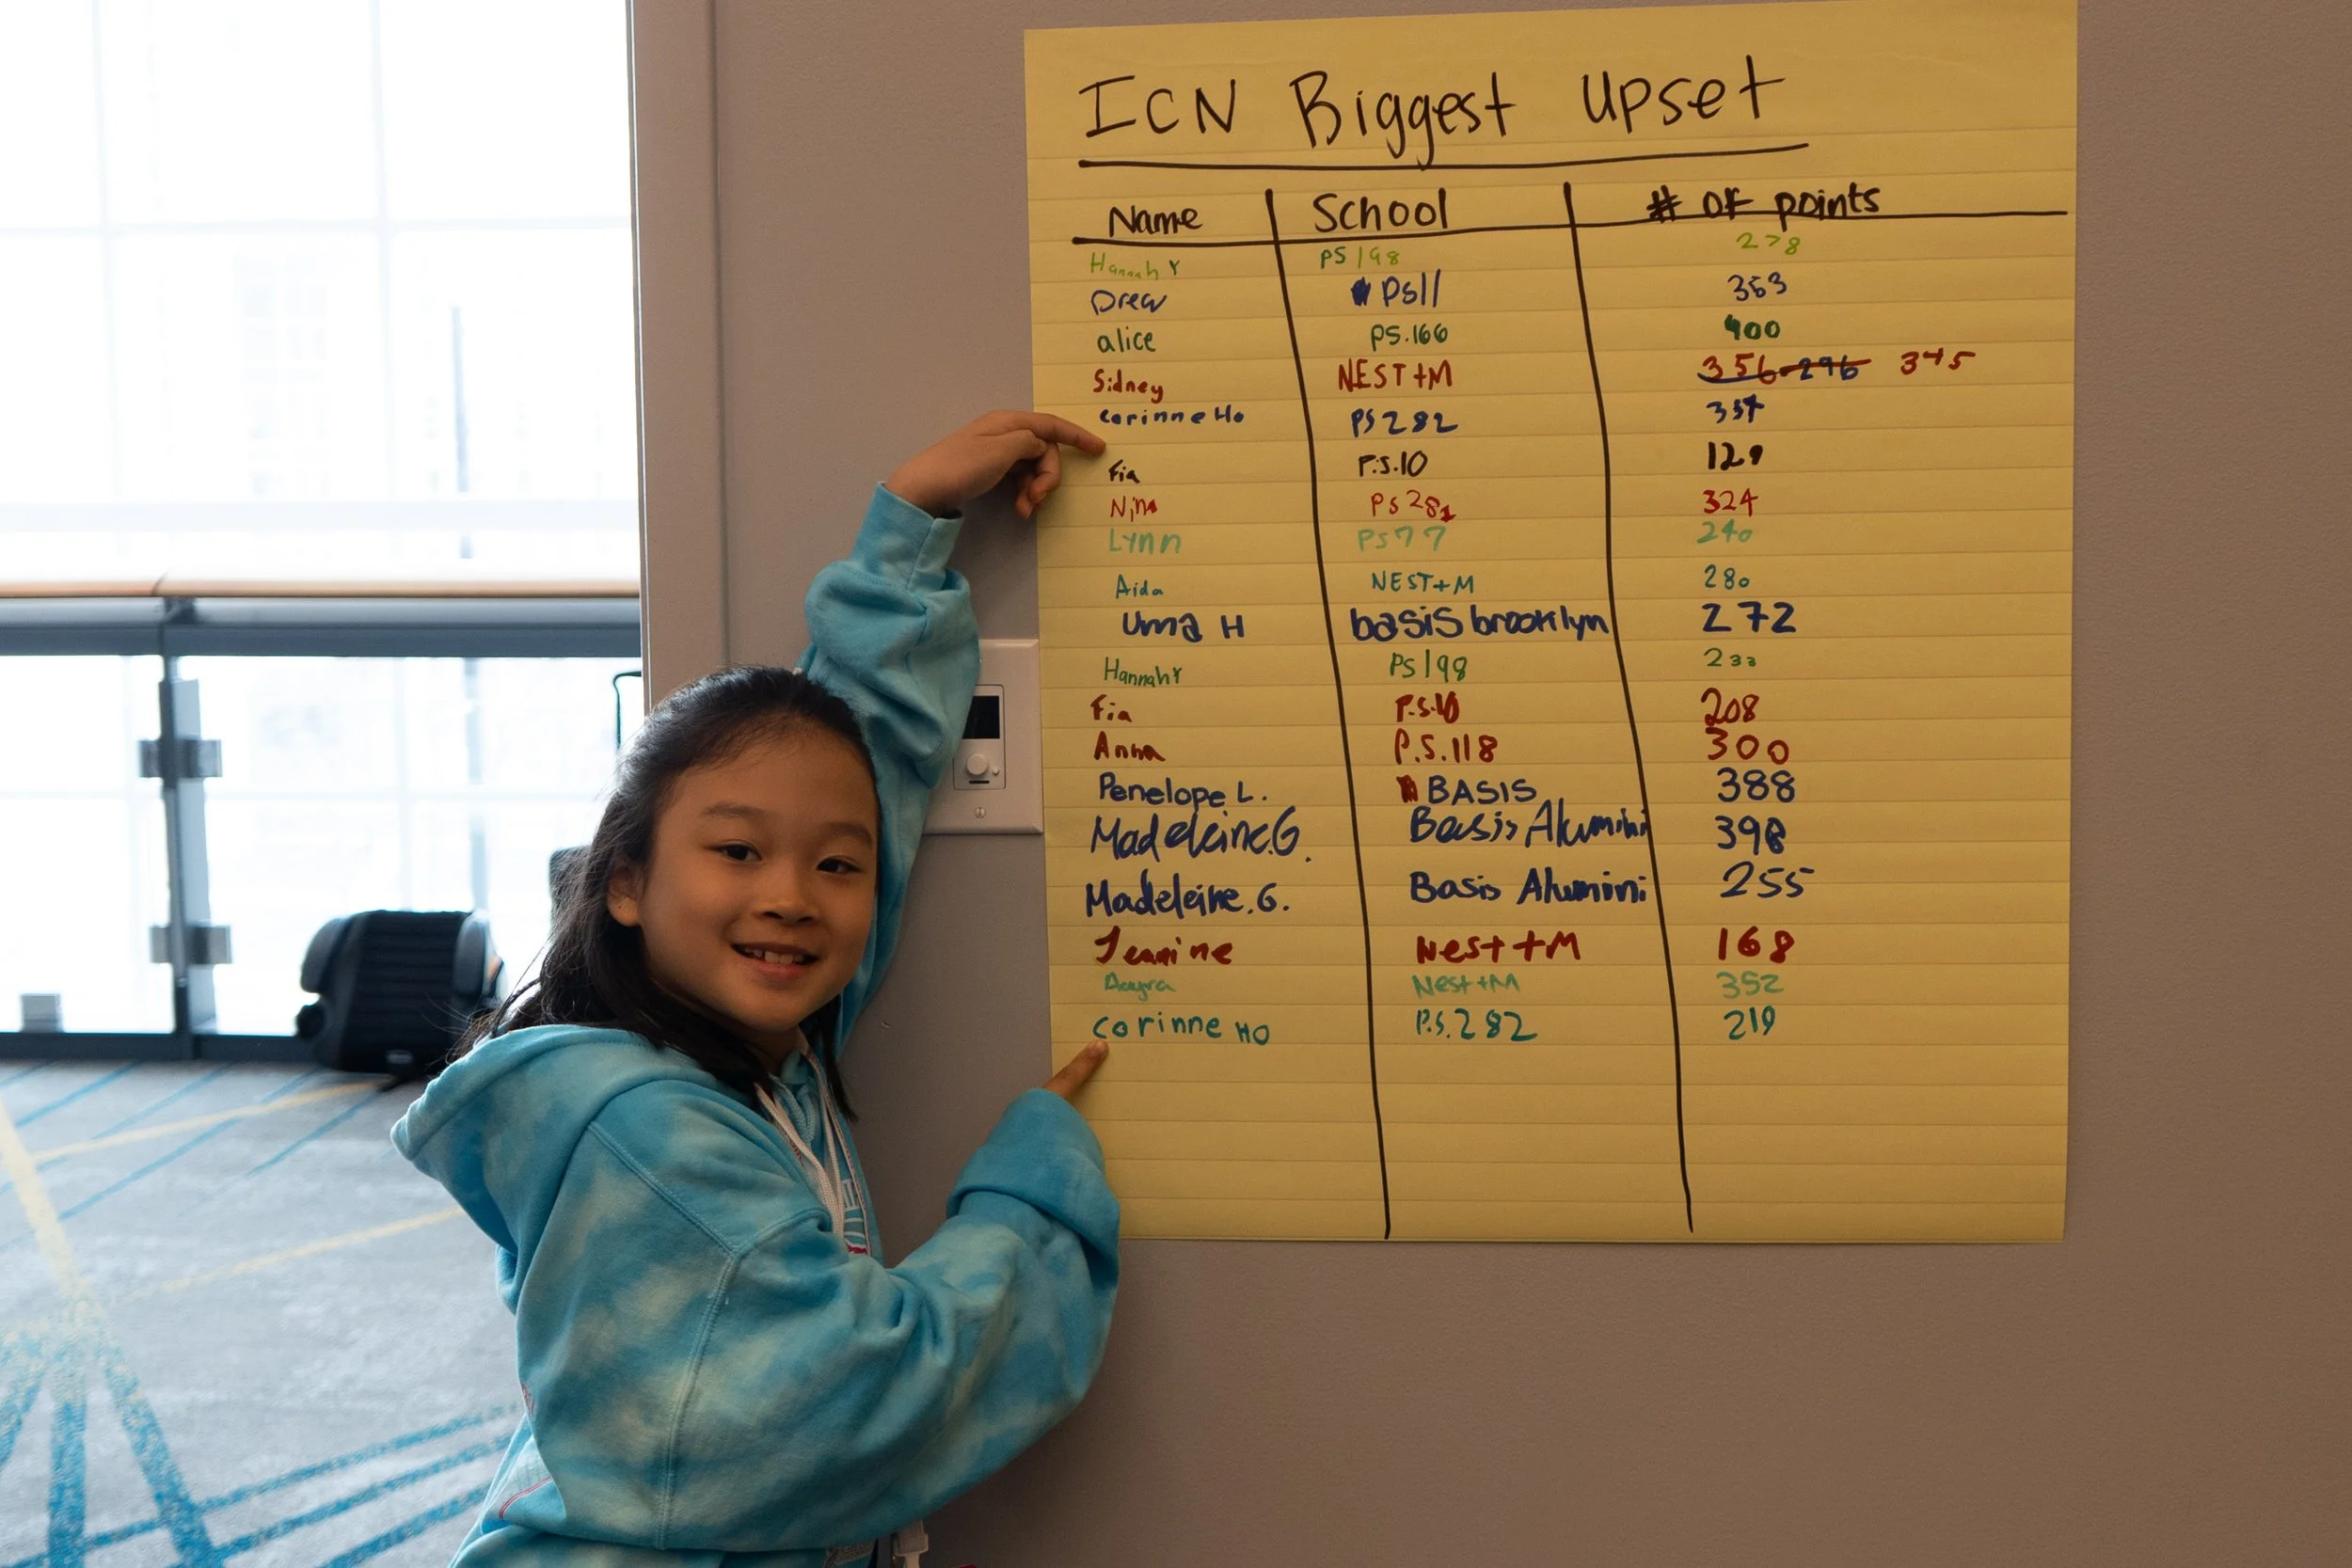 ICN Biggest Upset
Name School # of points
Hannah Y PS 198 278
Drew PS11 353
alice PS.166 400
Sidney NEST+M 356 296 345
Corinne Ho PS 282 357
Fia P.S.10 129
Nina PS 281
324
Lynn PS77 240
Aida NEST+M 280
Uma H basis brooklyn 272
Hannah Y PS 198 233
Fia P.S.10 208
Anna P.S.118 300
Penelope L. BASIS 388
Madeleine.G. Basis Alumini 398
Madeleine.G. Basis Alumini 255
Jeanine Nest+M 168
Nest+M 352
Corinne HO P.S.282 219